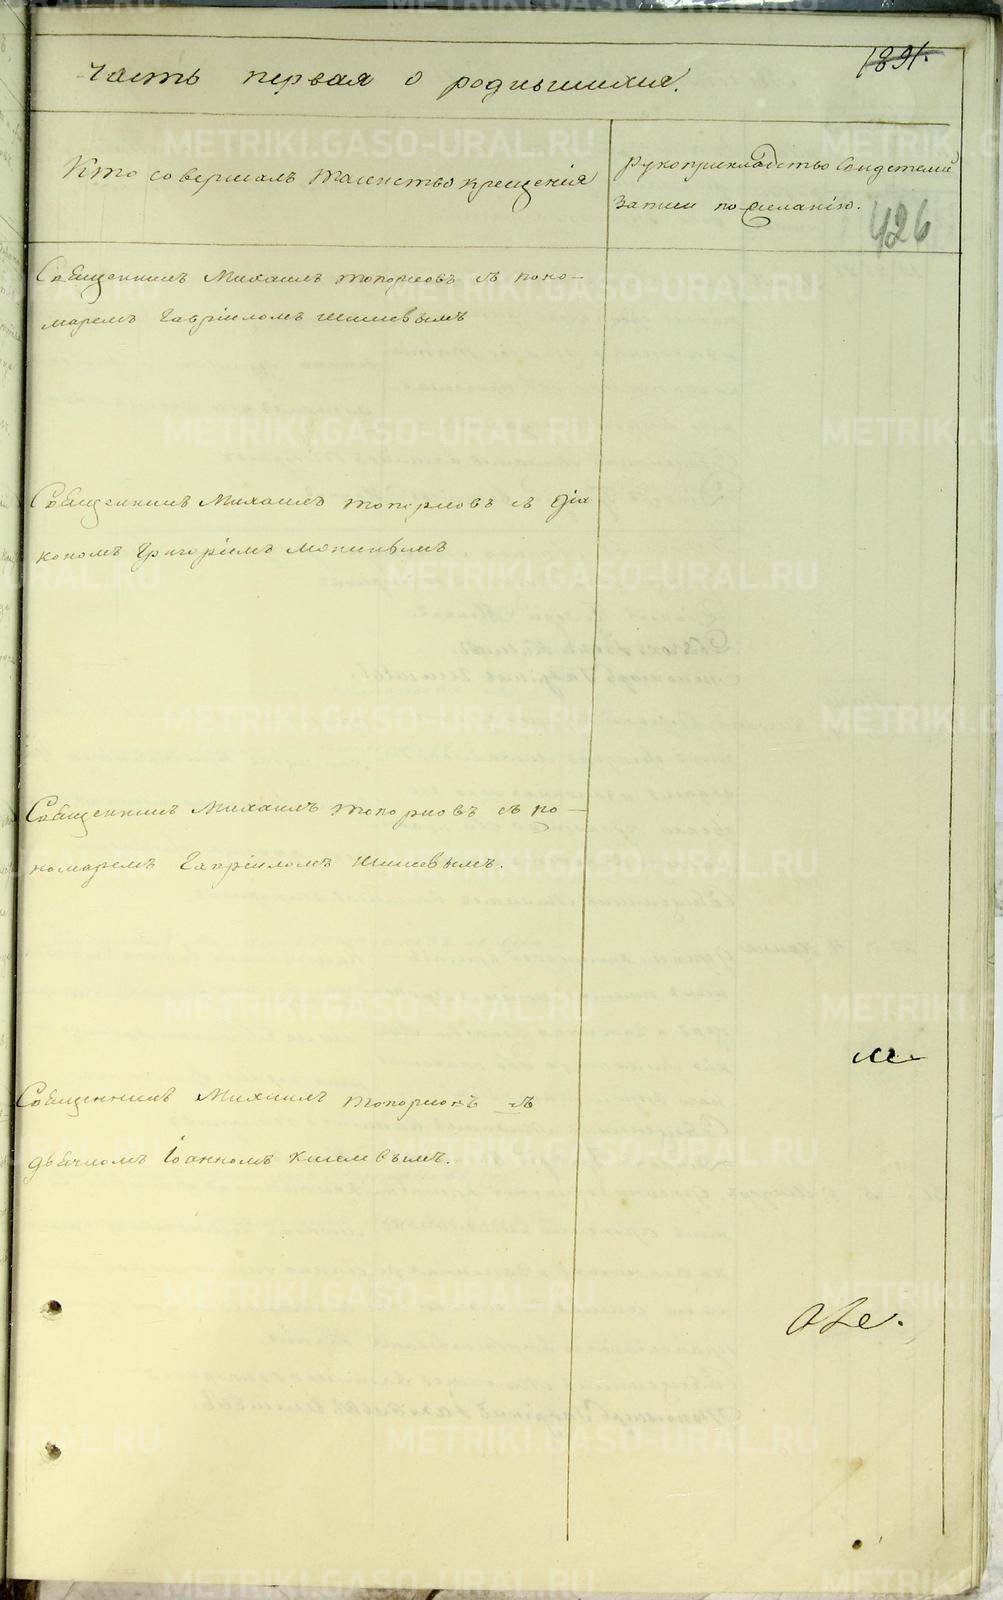 1891.
Часть первая о родившихся.
Кто совершалъ таинство крещенія
Рукоприкладство свидетелей
записи по желанію.
426
Священникъ Михаилъ Топорковъ съ поно-
маремъ Гавріиломъ Шишевымъ
Священникъ Михаилъ Топорковъ съ діа
кономъ Григоріемъ
Священникъ Михаилъ Топорковъ съ по-
номаремъ Гавріиломъ Шишевымъ.
Священникъ Михаилъ Топорковъ съ
дьячкомъ Іоанномъ
METRIKI.GASO-URAL.RU